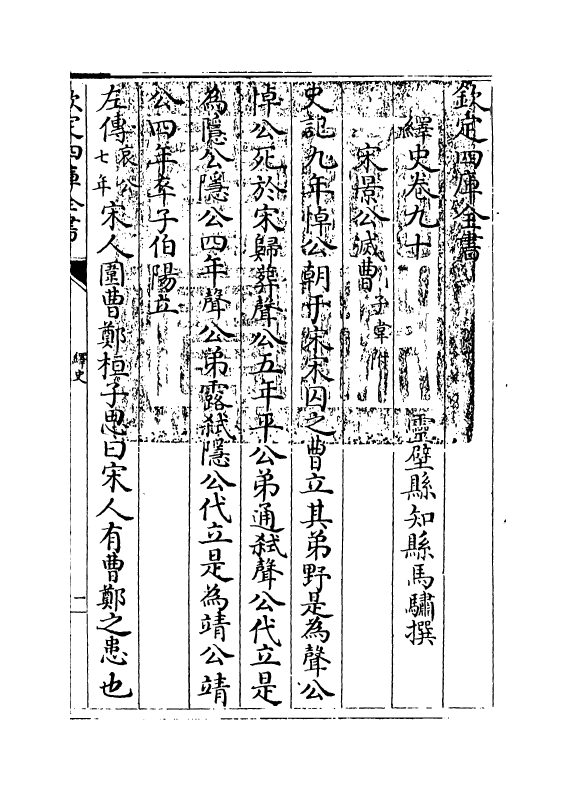 欽定四庫全書
繹史卷九十
靈壁縣知縣馬驌撰
宋景公滅曹子韋附
史記九年悼公朝于宋宋囚之曹立其弟野是為聲公
悼公死於宋歸葬聲公五年平公弟通弑聲公代立是
為隱公隱公四年聲公弟露弑隱公代立是為靖公靖
公四年卒子伯陽立
左傳哀公七年宋人圍曹鄭桓子思曰宋人有曹鄭之患也
欽定四庫全書
繹史
一